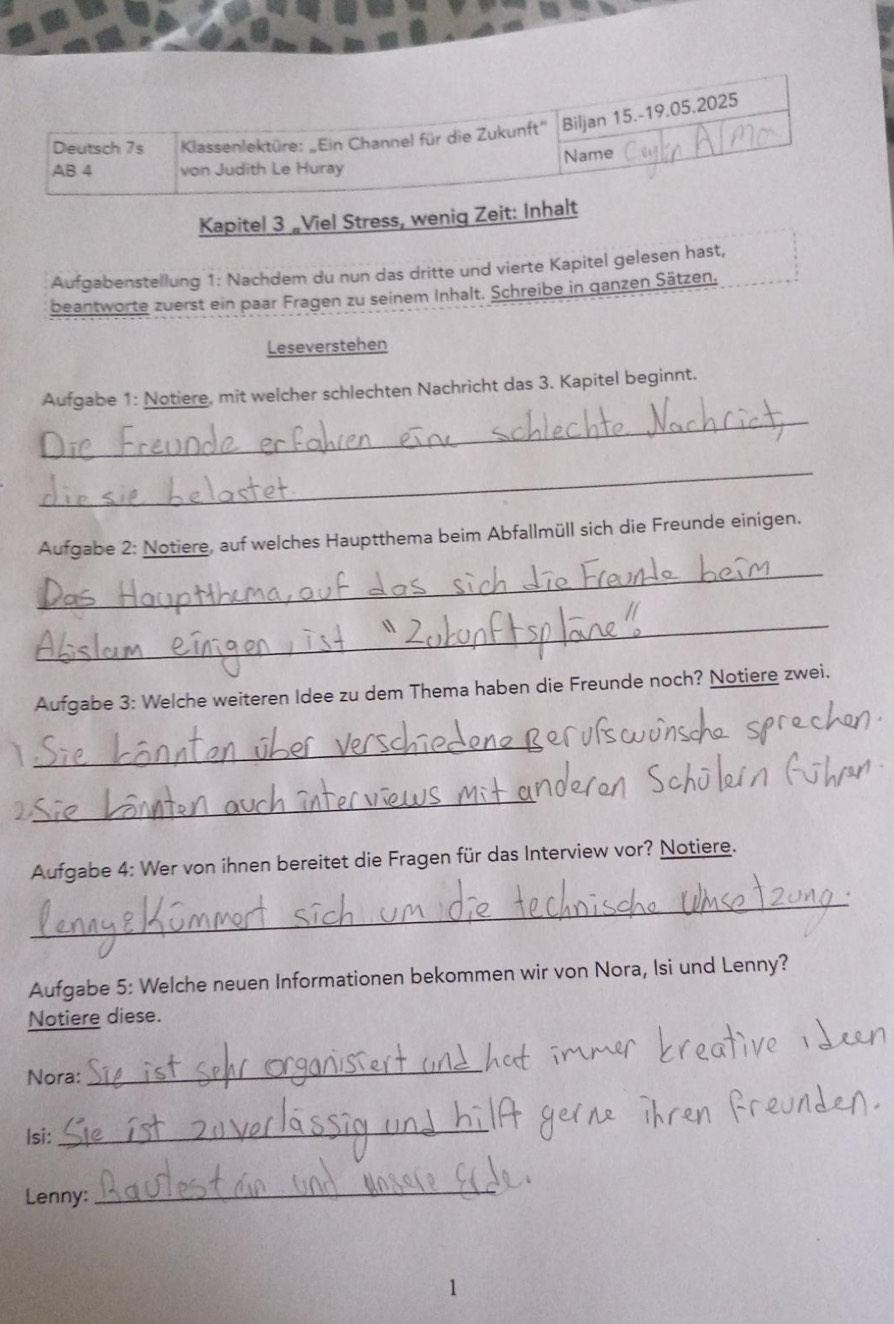 Deutsch 7s
AB 4
Klassenlektüre: „Ein Channel für die Zukunft"
von Judith Le Huray
Biljan 15.-19.05.2025
Name
Kapitel 3 „Viel Stress, wenig Zeit: Inhalt
Aufgabenstellung 1: Nachdem du nun das dritte und vierte Kapitel gelesen hast,
beantworte zuerst ein paar Fragen zu seinem Inhalt. Schreibe in ganzen Sätzen.
Leseverstehen
Aufgabe 1: Notiere, mit welcher schlechten Nachricht das 3. Kapitel beginnt.
Die Freunde erfahren eine schlechte Nachrict,
die sie belastet.
Aufgabe 2: Notiere, auf welches Hauptthema beim Abfallmüll sich die Freunde einigen.
Das Hauptthema, auf das sich die Freunde beim
einigen, ist "Zukunftspläne".
Aufgabe 3: Welche weiteren Idee zu dem Thema haben die Freunde noch? Notiere zwei.
1. Sie könnten über verschiedene Berufswünsche sprechen.
2. Sie könnten auch interviews mit anderen Schülern führen.
Aufgabe 4: Wer von ihnen bereitet die Fragen für das Interview vor? Notiere.
kümmert sich um die technische Umsetzung.
Aufgabe 5: Welche neuen Informationen bekommen wir von Nora, Isi und Lenny?
Notiere diese.
Nora: Sie ist sehr organisiert und hat immer kreative ideen
Isi: Sie ist zuverlässig und hilft gerne ihren Freunden.
Lenny: und unsere Erde.
1